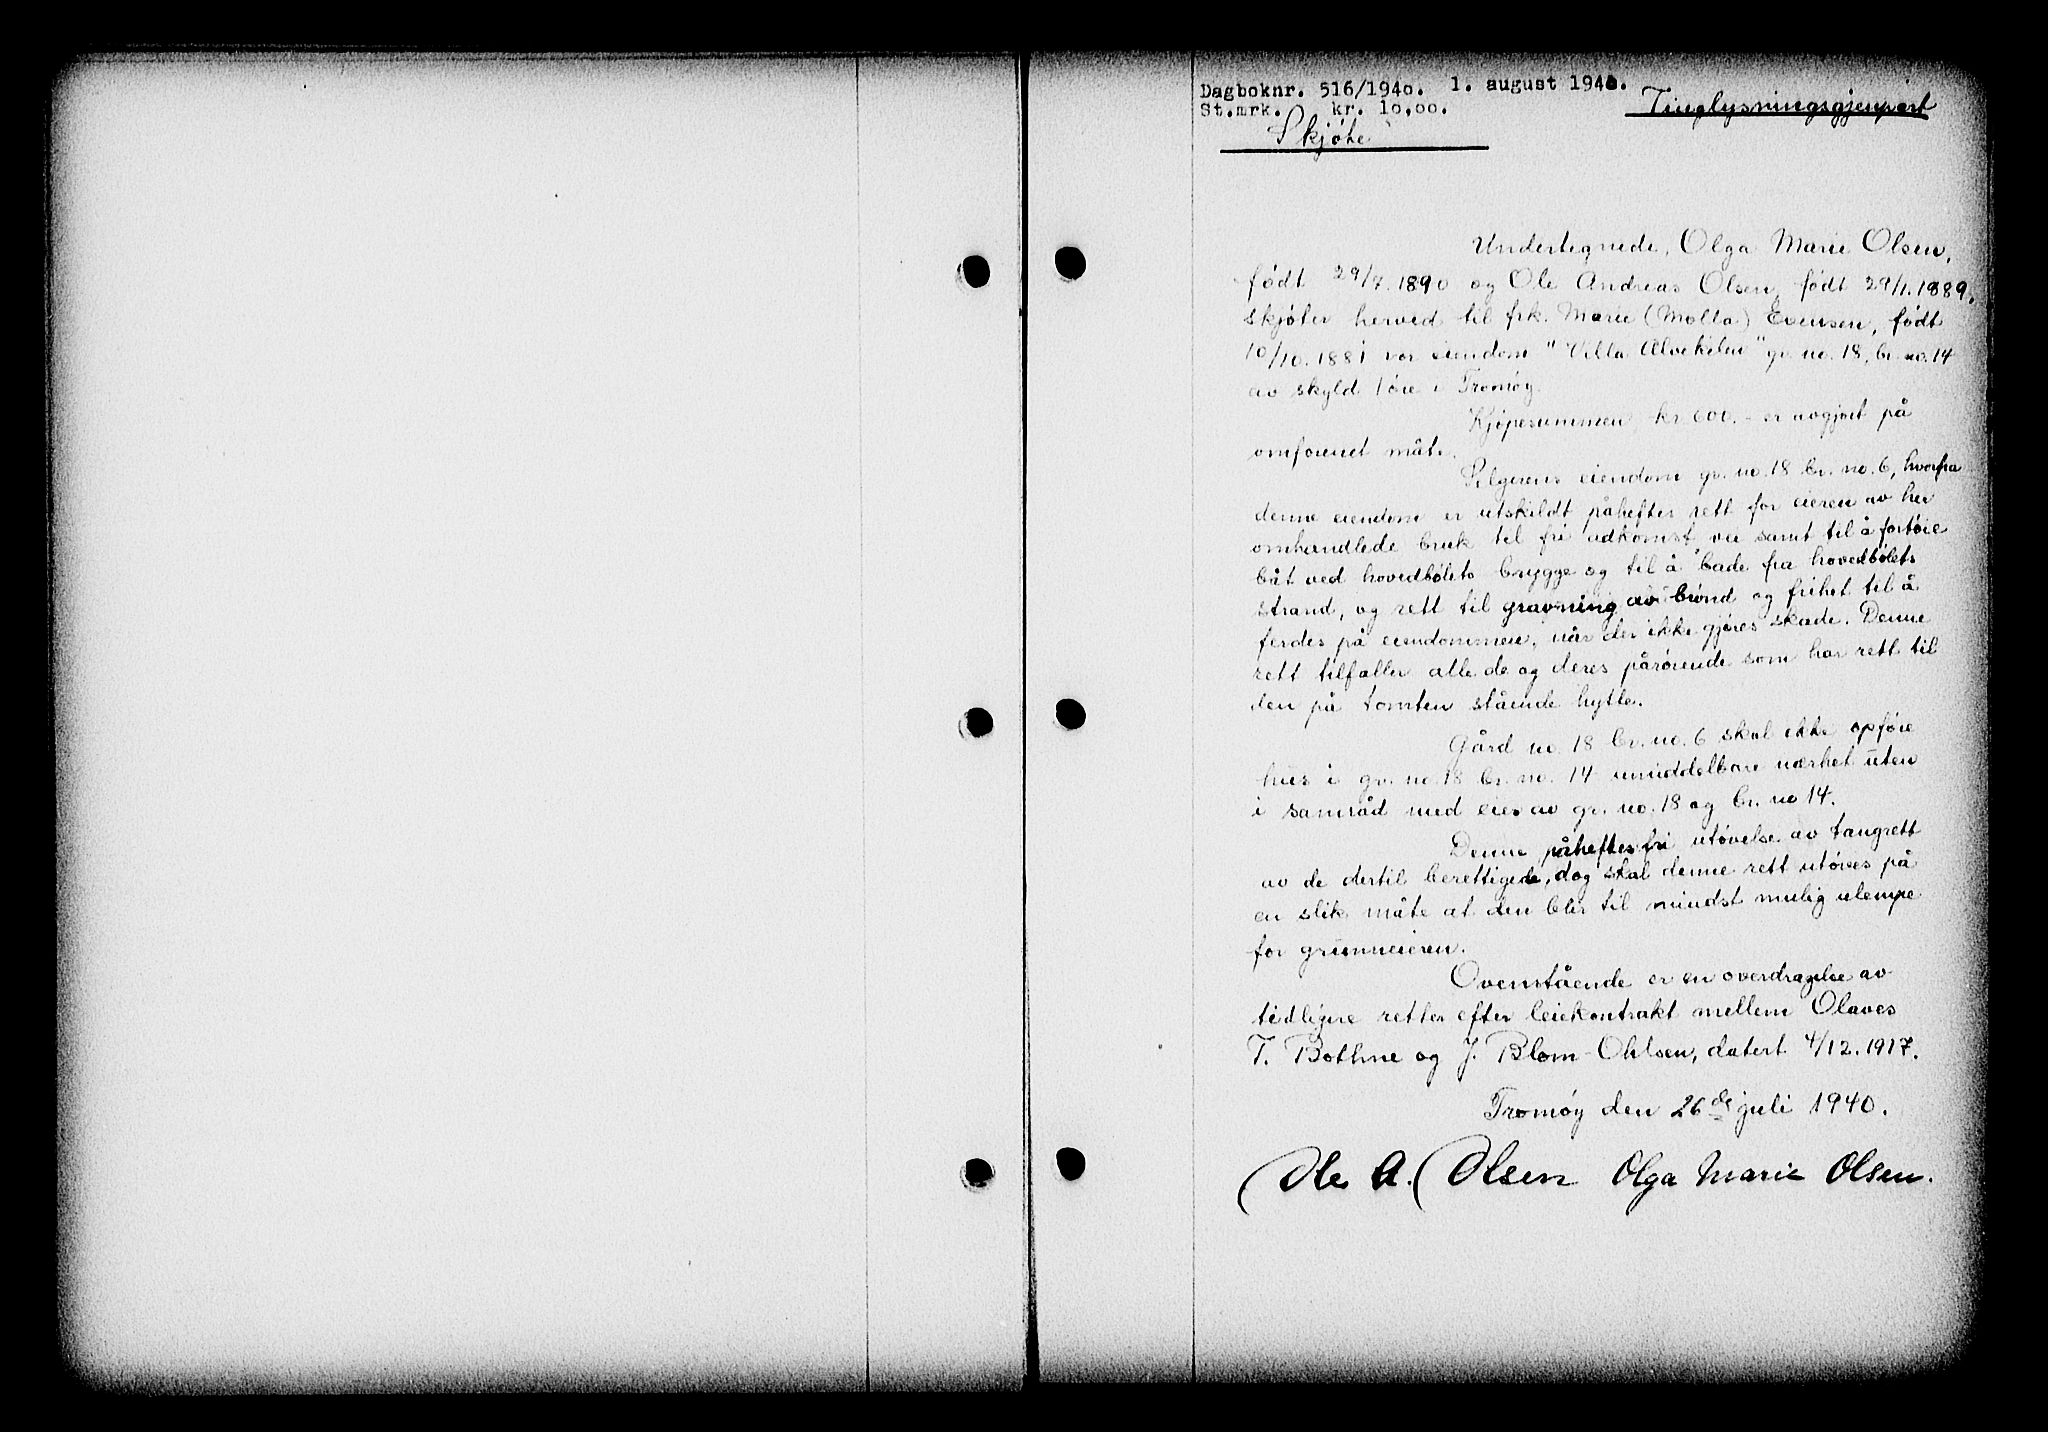 Dagboknr. 516/1940. 1. august 1940.
St.mrk. kr. 10,00.
Tinglysningsgjenpart
Skjøte
Undertegnede, Olga Marie Olsen,
født 29/7. 1890 og Ole Andreas Olsen, født 29/1. 1889.
skjøter herved til frk. Marie (Molla) Evensen, født
10/10. 1881 vor eiendom "Villa Alvekilen" gr. no. 18, br. no. 14
av skyld 1 øre i Tromøy.
Kjøpesummen kr 600.- er avgjort på
omforenet måte.
Selgerens eiendom gr. no. 18 br. no. 6, hvorfra
denne eiendom er utskildt påhefter rett for eieren av her
omhandlede bruk til fri adkomst, vei samt til å fortøie
båt ved hovedbølets brygge og til å bade fra hovedbølets
strand, og rett til gravning av brønd og frihet til å
ferdes på eiendommen, når der ikke gjøres skade. Denne
rett tilfaller alle de og deres pårørende som har rett til
den på tomten stående hytte.
Gård no 18 br. no. 6 skal ikke opføre
hus i gr. no. 18 br. no. 14 umiddelbare nærhet uten
i samråd med eier av gr. no. 18 og br. no 14.
Denne påheftes fri utøvelse av tangrett
av de dertil berettigede, dog skal denne rett utøves på
en slik måte at den blir til mindst mulig ulempe
for grunneieren.
Ovenstående er en overdragelse av
tidligere retter efter leiekontrakt mellem Olaves
T. Bothne og J. Blom-Ohlsen, datert 4/12. 1917.
Tromøy den 26de juli 1940.
Ole A. Olsen Olga Marie Olsen.